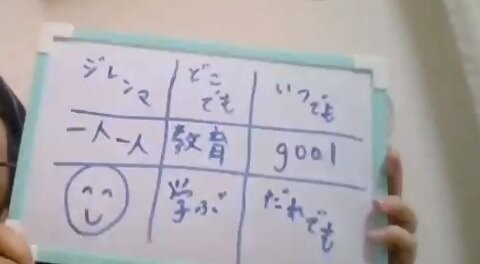 ジレンマ
どこでも
いつでも
一人一人
教育
goal
学ぶ
だれでも